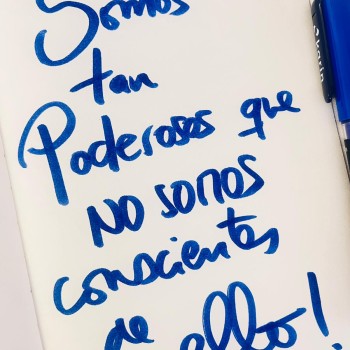 Somos
tan
Poderosos que
NO somos
conscientes
de ello!